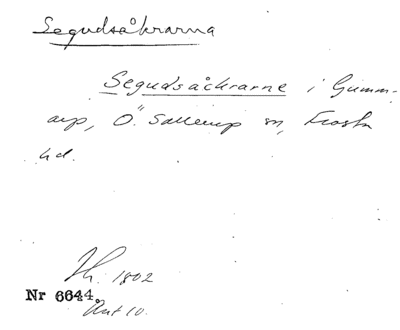 Segudsåkrarna
Segudsåkrarne i Gumm-
arp, Ö. Sallerup sn, Frosta
hd.
1802
Nr 6644.
10.